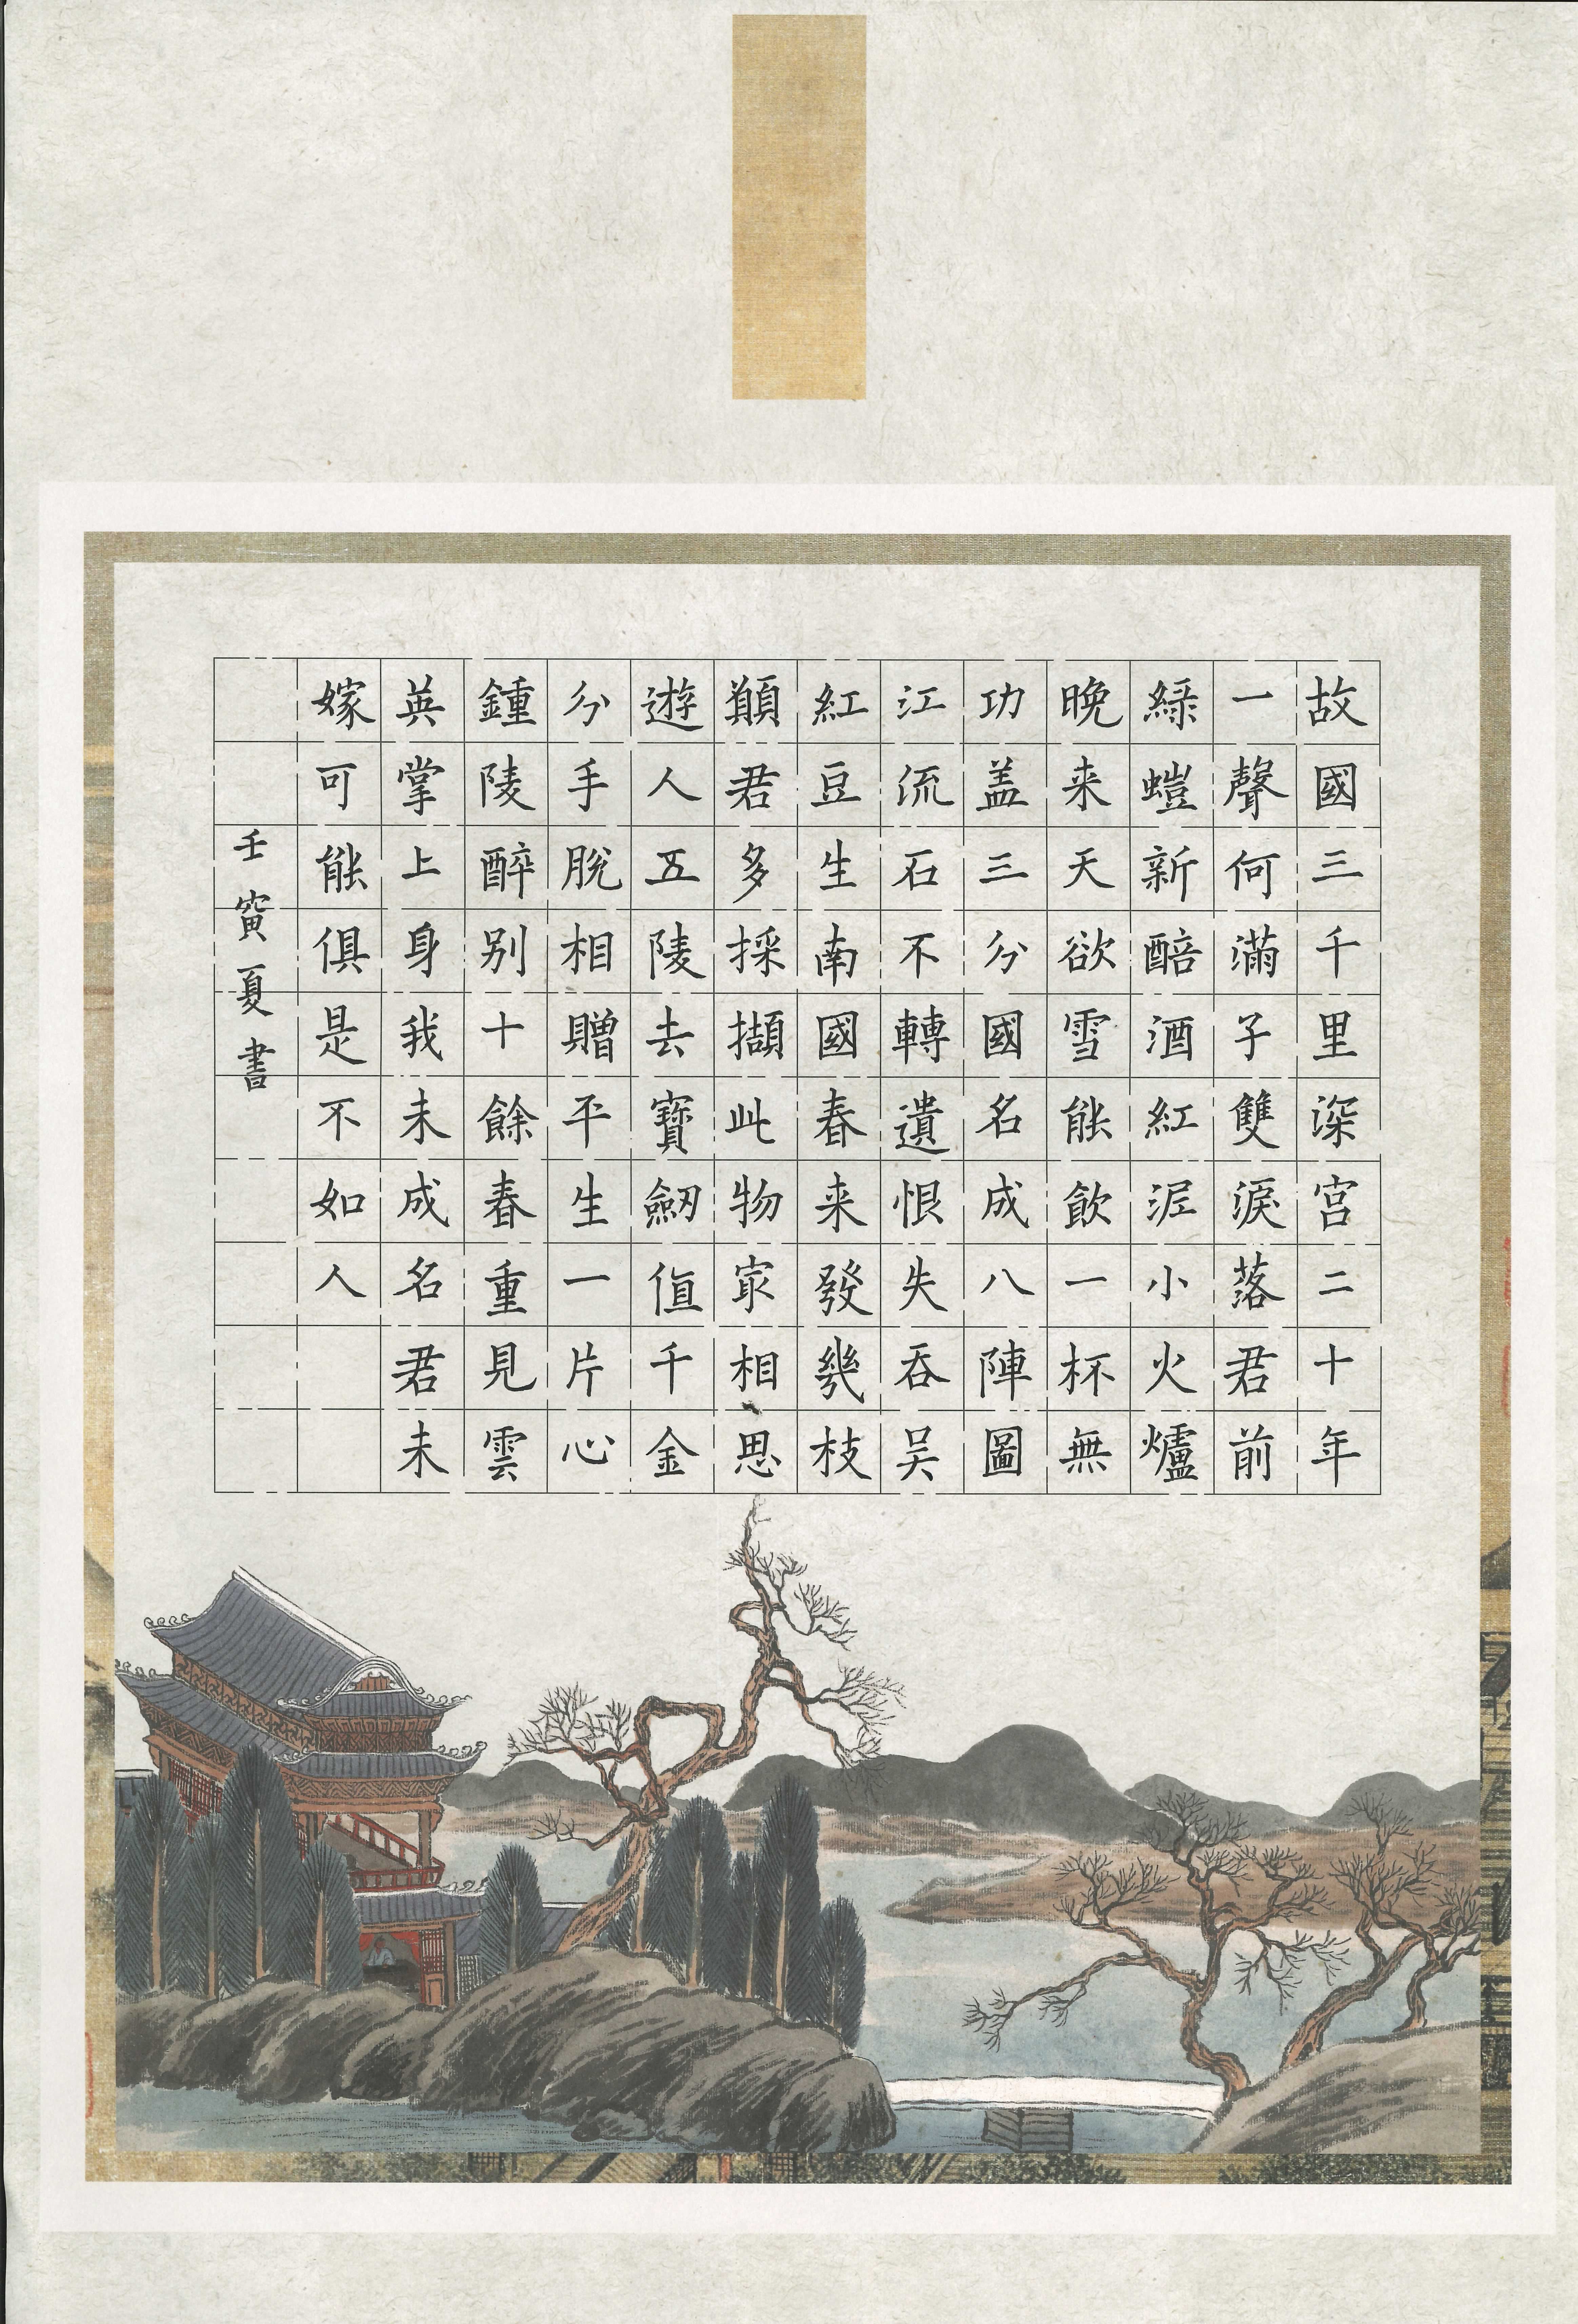 故國三千里深宫二十年
一聲何滿子雙淚落君前
綠螘新醅酒紅泥小火爐
晚来天欲雪能飲一杯無
功盖三分國名成八陣圖
江流石不轉遺恨失吞吴
紅豆生南國春来發幾枝
願君多採擷此物㝡相思
遊人五陵去寶劒值千金
分手脫相贈平生一片心
鍾陵醉别十餘春重見雲
英掌上身我未成名君未
嫁可能俱是不如人
壬寅夏書